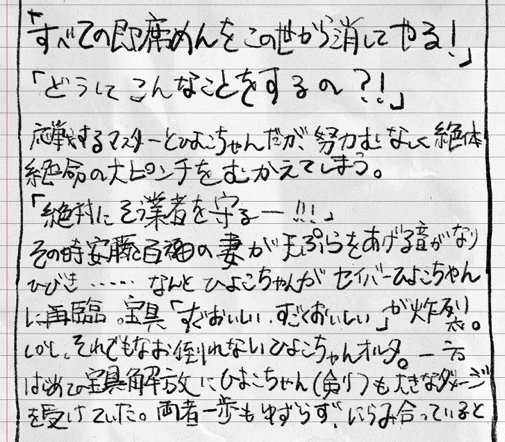 「すべての即席めんをこの世から消してやる！」
「どうしてこんなことをするの？！」
応戦するマスターとひよこちゃんだが、努力むなしく絶体
絶命の大ピンチをむかえてしまう。
「絶対にそう業者を守るー！！！」
その時安藤百福の妻が天ぷらをあげる音がなり
ひびき……なんとひよこちゃんがセイバーひよこちゃん
に再臨。宝具「すごおいしい、すごくおいしい」が炸裂。
しかし、それでもなお倒れないひよこちゃんオルタ。一方
はじめての宝具解放にひよこちゃん(剣)も大きなダメージ
を受けていた。両者一歩もゆずらず、にらみ合っていると